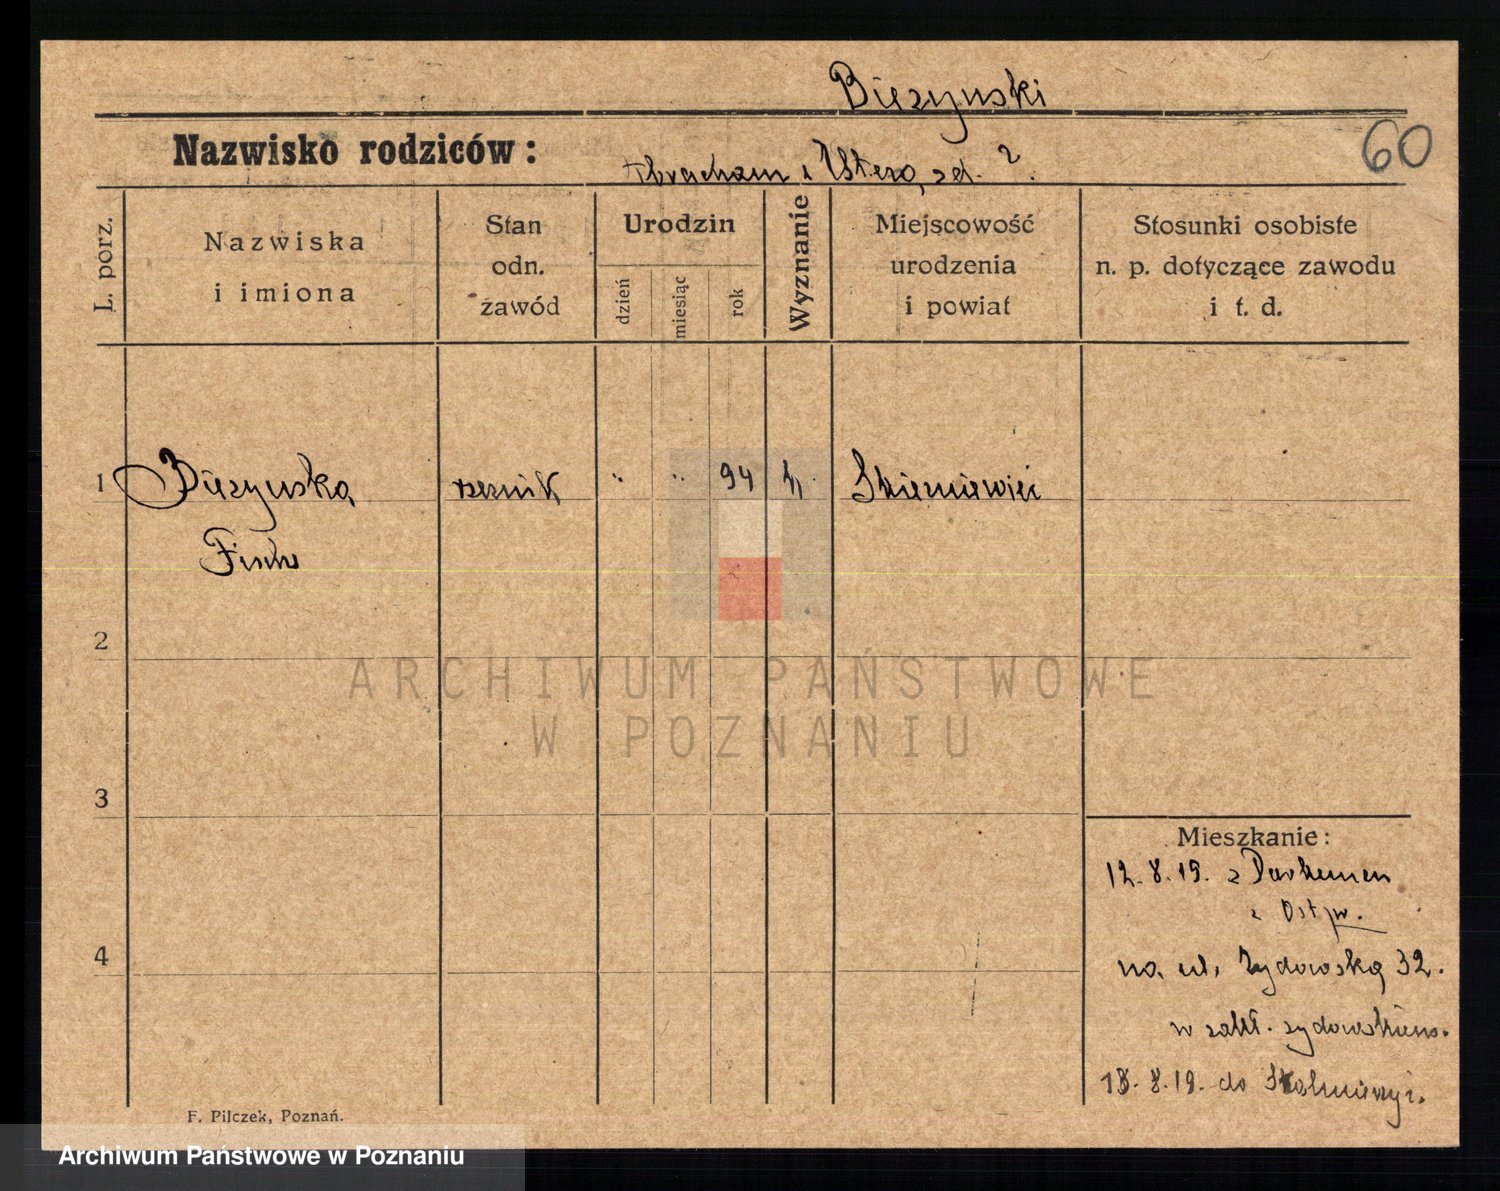 Bieżynski
60
Nazwisko rodziców:
Abraham i Estera, zd. ?.
L. porz.
Nazwiska
i imiona
Stan
odn.
zawód
Urodzin
dzień
miesiąc
rok
Wyznanie
Miejscowość
urodzenia
i powiat
Stosunki osobiste
n. p. dotyczące zawodu
i t. d.
1
rzeznik
"
"
94
Skierniewici
2
3
4
Mieszkanie:
12. 8. 19. z Darkemen
z Ostpr.
na ul. Zydowską 32.
w zakł. zydowskiem.
18. 8. 19. do
F. Pilczek, Poznań.
ARCHIWUM PAŃSTWOWE
W POZNANIU
Archiwum Państwowe w Poznaniu